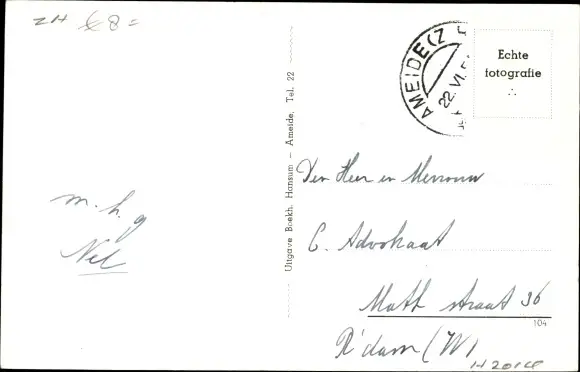 ZH 8=
AMEIDE (Z
22.VI.5
Echte
fotografie
Uitgave Boekh. Hansum – Ameide, Tel. 22
Den Heer en Mevrouw
C. Advokaat
Math straat 36
R'dam (W)
104
m.h.g
Nel